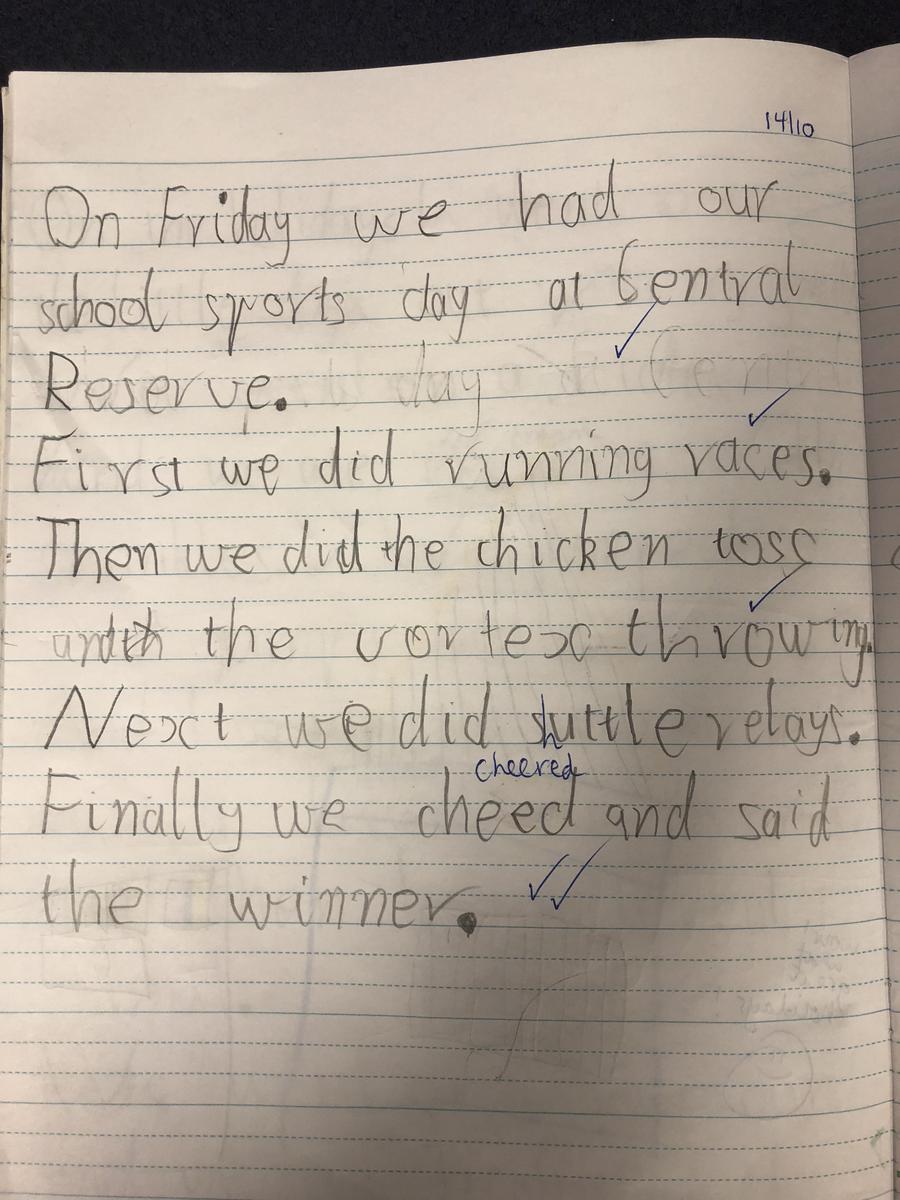 14/10
On Friday we had our
school sports day at Central
Reserve.
First we did running races.
Then we did the chicken toss
the vortex throwing.
Next we did shuttle relays.
cheered
Finally we cheed and said
the winner.